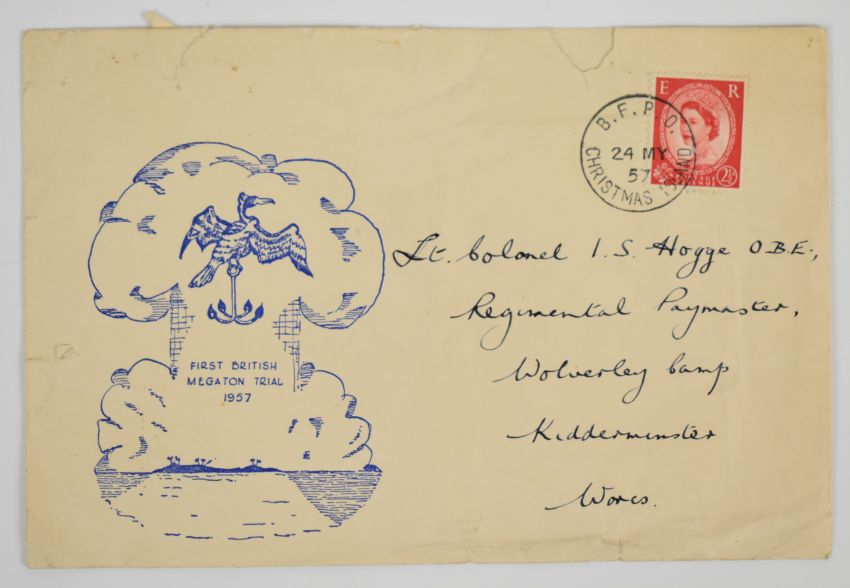 E R
B.F.P.O.
24 MY
57
CHRISTMAS ISLAND
POSTAGE
2½D
FIRST BRITISH
MEGATON TRIAL
1957
Lt. Colonel I. S. Hogge O.B.E.,
Regimental Paymaster,
Wolverley Camp
Kidderminster
Worcs.